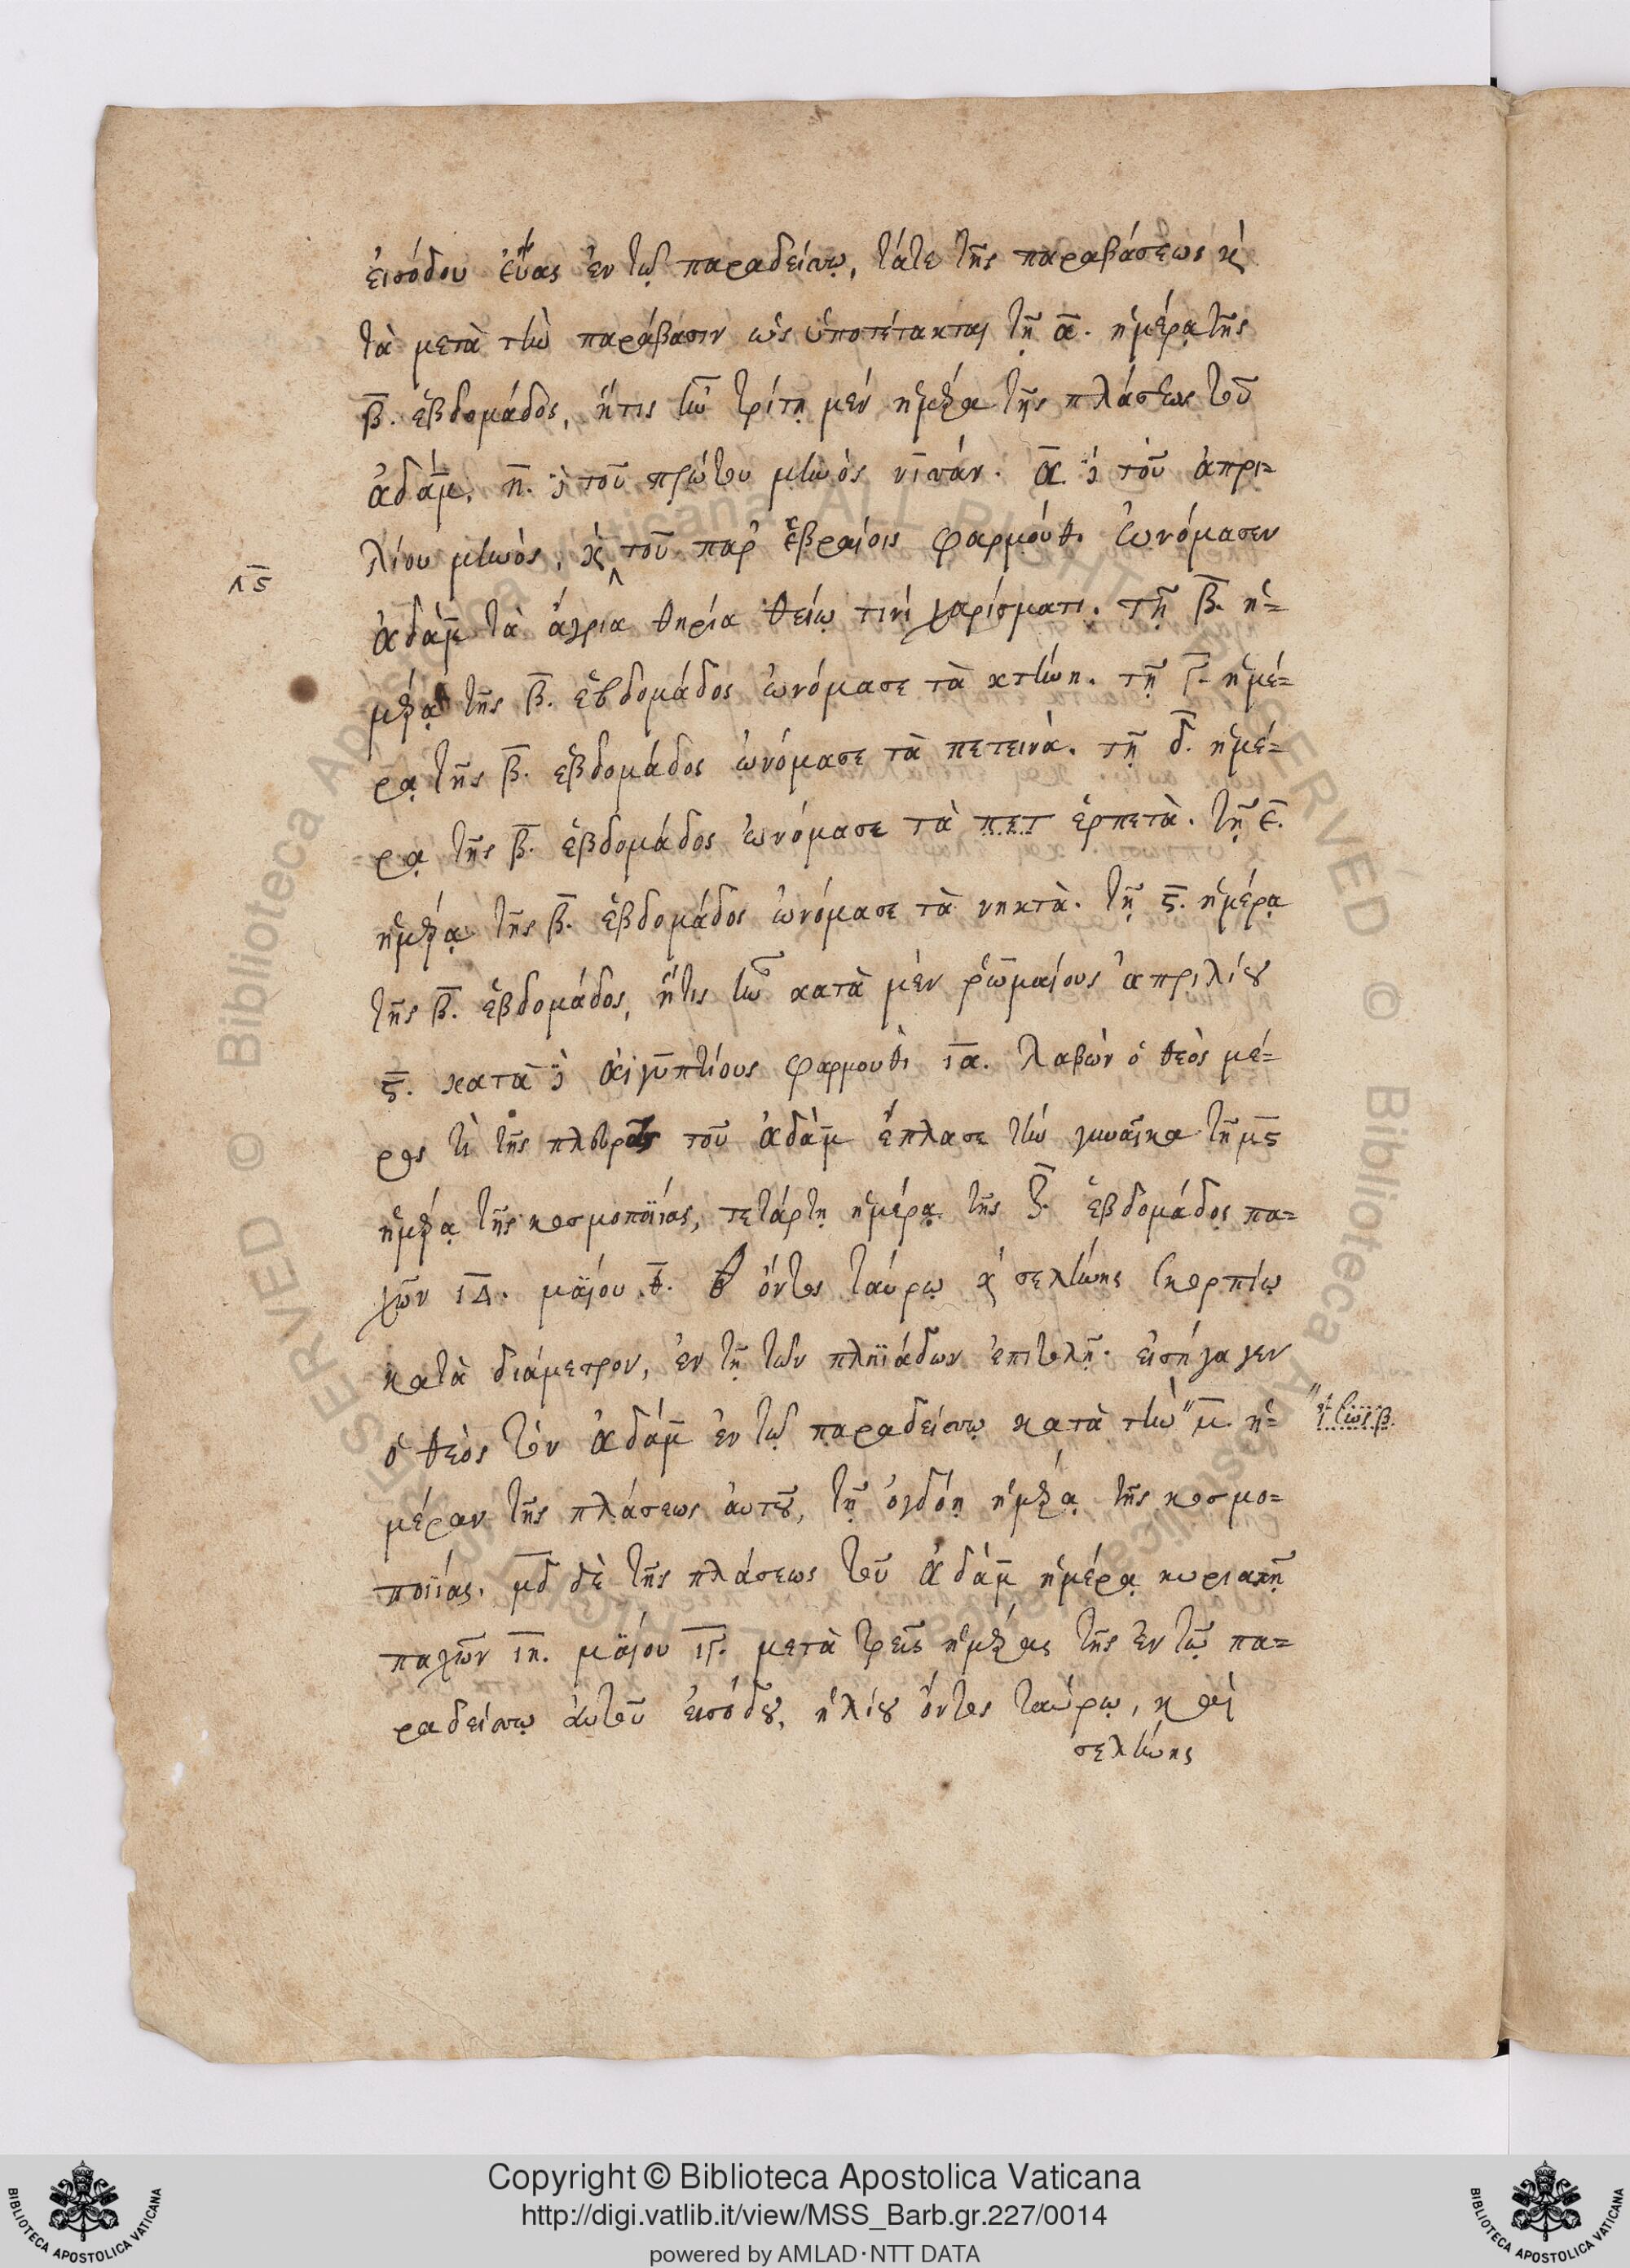 εἰσόδου εὔας ἐν τῷ παραδείσῳ, τά τε τῆς παραβάσεως κ̀
τὰ μετὰ τὴν παράβασιν ὡς ὑποτέτακται τῇ α̅. ἡμέρᾳ τῆς
β̅. ἑβδομάδος, ἥτις ἦν τρίτη μὲν ἡμέρα τῆς πλάσεως τοῦ
ἀδάμ, η̅. δὲ τοῦ πρώτου μηνὸς νισάν. α̅. δὲ τοῦ ἀπρι=
λίου μηνὸς, κ̀ τοῦ παρ' ἑβραίοις φαρμουθὶ ὠνόμασεν
λ̅ς̅
ἀδὰμ τὰ ἄγρια θηρία θείῳ τινὶ χαρίσματι. τῇ β̅. ἡ=
μέρᾳ τῆς β̅. ἑβδομάδος ὠνόμασε τὰ κτήνη. τῇ γ̅. ἡμέ=
ρᾳ τῆς β̅. ἑβδομάδος ὠνόμασε τὰ πετεινά. τῇ δ̅. ἡμέ=
ρᾳ τῆς β̅. ἑβδομάδος ὠνόμασε τὰ πετ ἑρπετὰ. τῇ ε̅.
ἡμέρᾳ τῆς β̅. ἑβδομάδος ὠνόμασε τὰ νηκτὰ. τῇ ς̅. ἡμέρᾳ
τῆς β̅. ἑβδομάδος, ἥτις ἦν κατὰ μὲν ῥωμαίους ἀπριλίου
ς̅. κατὰ δὲ αἰγυπτίους φαρμουθὶ ι̅α̅. λαβὼν ὁ θεὸς μέ=
ρος τι τῆς πλευρᾶς τοῦ ἀδὰμ ἔπλασε τὴν γυναῖκα τῇ μ̅ς̅
ἡμέρᾳ τῆς κοσμοποιίας, τετάρτῃ ἡμέρᾳ τῆς ζ̅. ἑβδομάδος πα=
χὼν ι̅δ̅. μαΐου θ̅. ὄντος ταύρῳ κ̀ σελήνης σκορπίῳ
κατὰ διάμετρον, ἐν τῇ τῶν πληϊάδων ἐπιτολῇ. εἰσήγαγεν
ὁ θεὸς τὸν ἀδάμ ἐν τῷ παραδείσῳ κατὰ τὴν μ̅. ἡ=
μέραν τῆς πλάσεως αὐτοῦ, τῇ ὀγδόῃ ἡμέρᾳ τῆς κοσμο=
ποιίας. μ̅δ̅ δὲ τῆς πλάσεως τοῦ ἀδὰμ ἡμέρᾳ κυριακῇ
παχὼν ι̅η̅. μαΐου ι̅γ̅. μετὰ τρεῖς ἡμέρας τῆς ἐν τῷ πα=
ραδείσῳ αὐτοῦ εἰσόδου, ἡλίου ὄντος ταύρῳ, καὶ
σελήνης
Copyright © Biblioteca Apostolica Vaticana
http://digi.vatlib.it/view/MSS_Barb.gr.227/0014
powered by AMLAD·NTT DATA
BIBLIOTECA APOSTOLICA VATICANA
BIBLIOTECA APOSTOLICA VATICANA